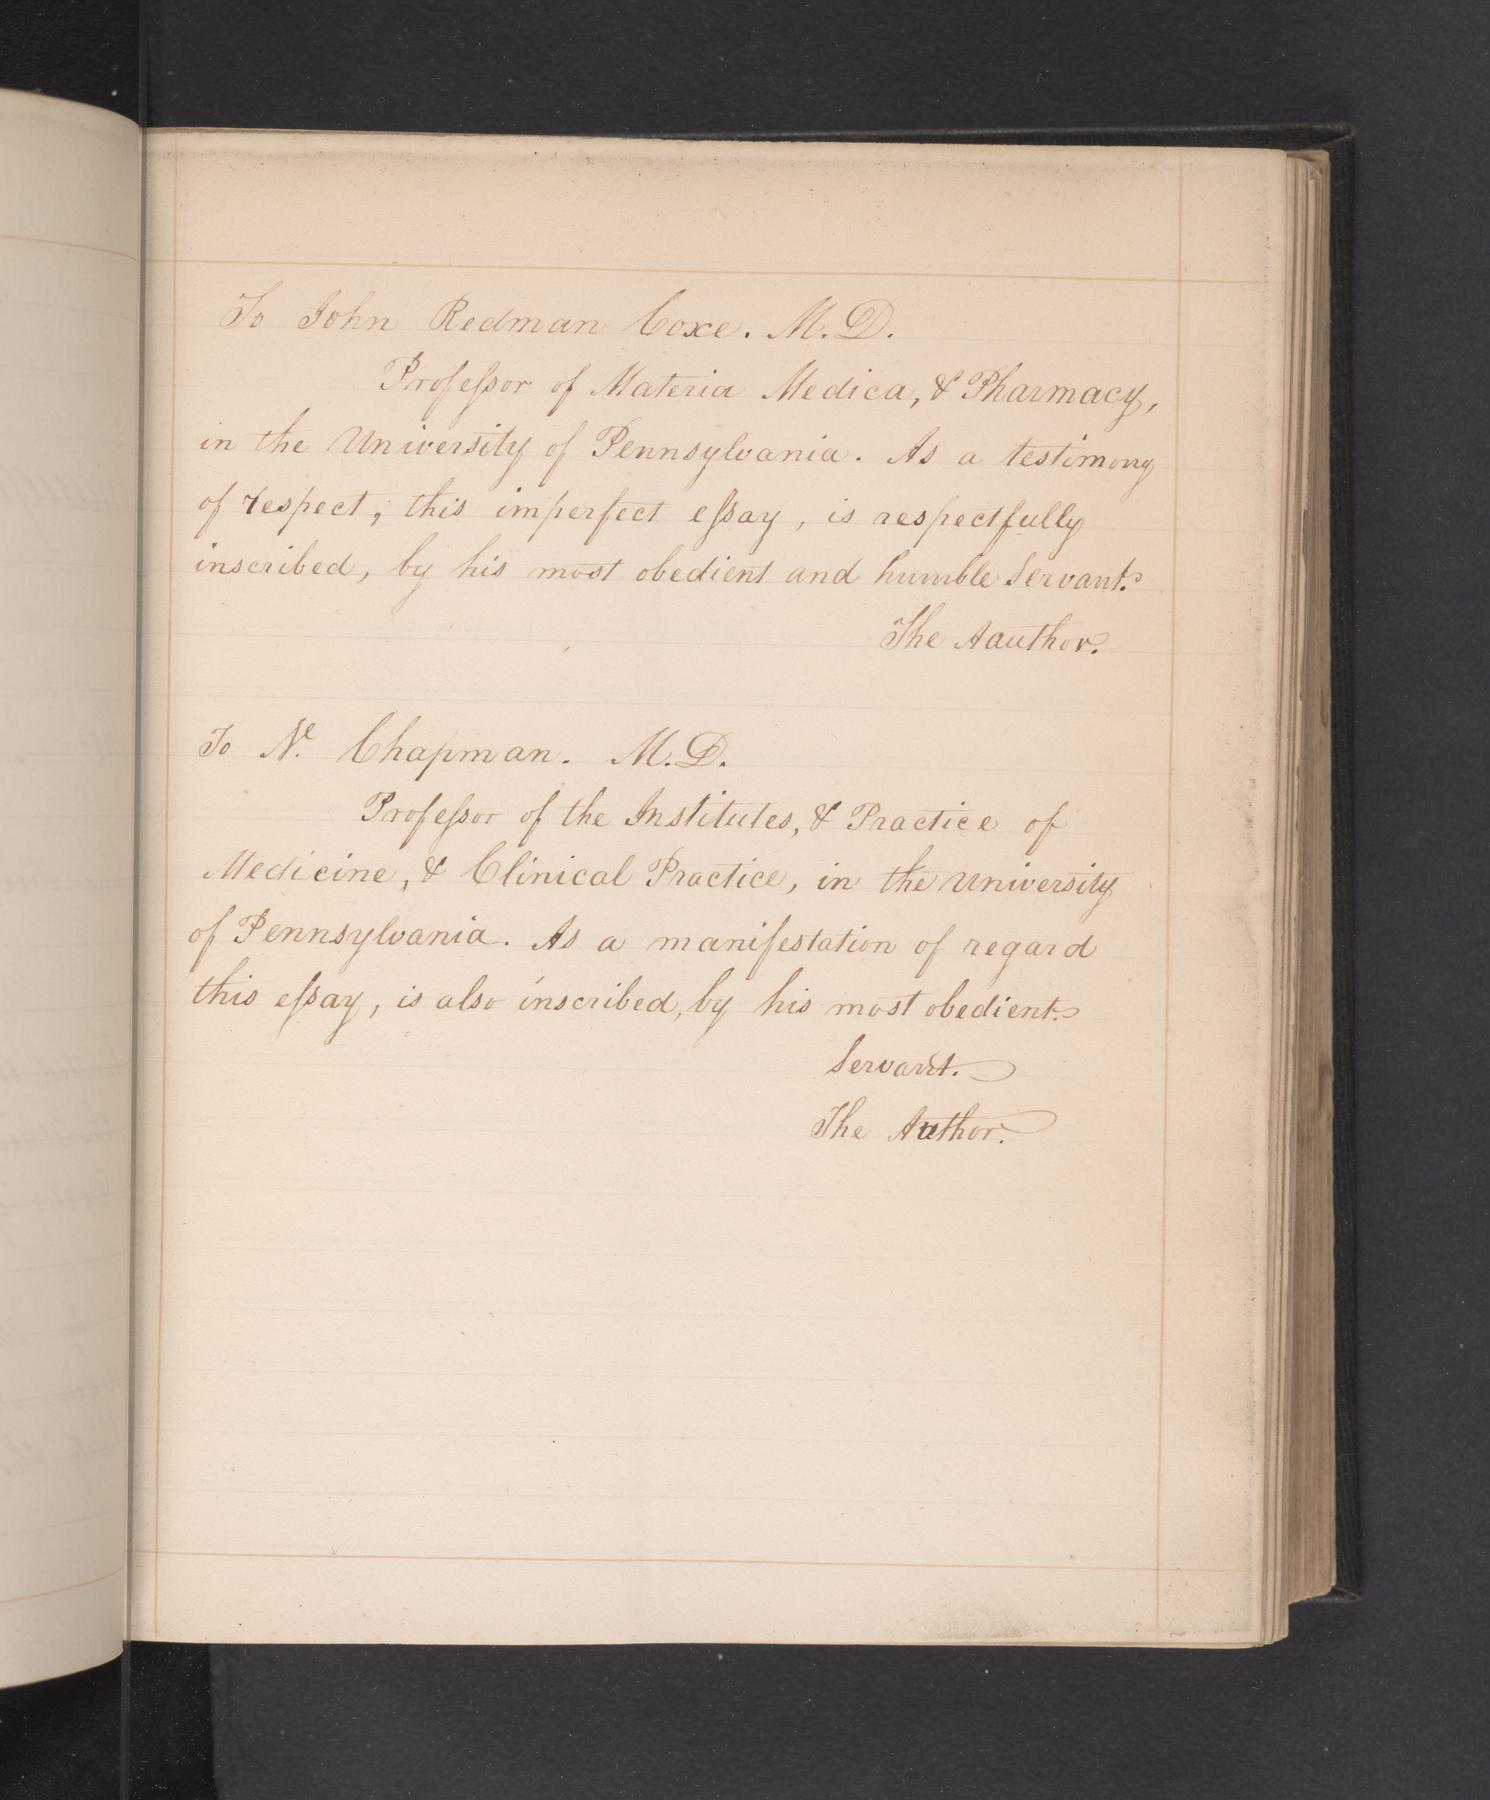 To John Redman Coxe. M.D.
Profeſsor of Materia Medica, & Pharmacy,
in the University of Pennsylvania. As a testimony
of respect; this imperfect eſsay, is respectfully
inscribed, by his most obedient and humble Servant.
The Aauthor.
To Nᵉ. Chapman. M.D.
Profeſsor of the Institutes, & Practice of
Medicine, & Clinical Practice, in the University
of Pennsylvania. As a manifestation of regard
this eſsay, is also inscribed, by his most obedient.
Servant.
The Author.